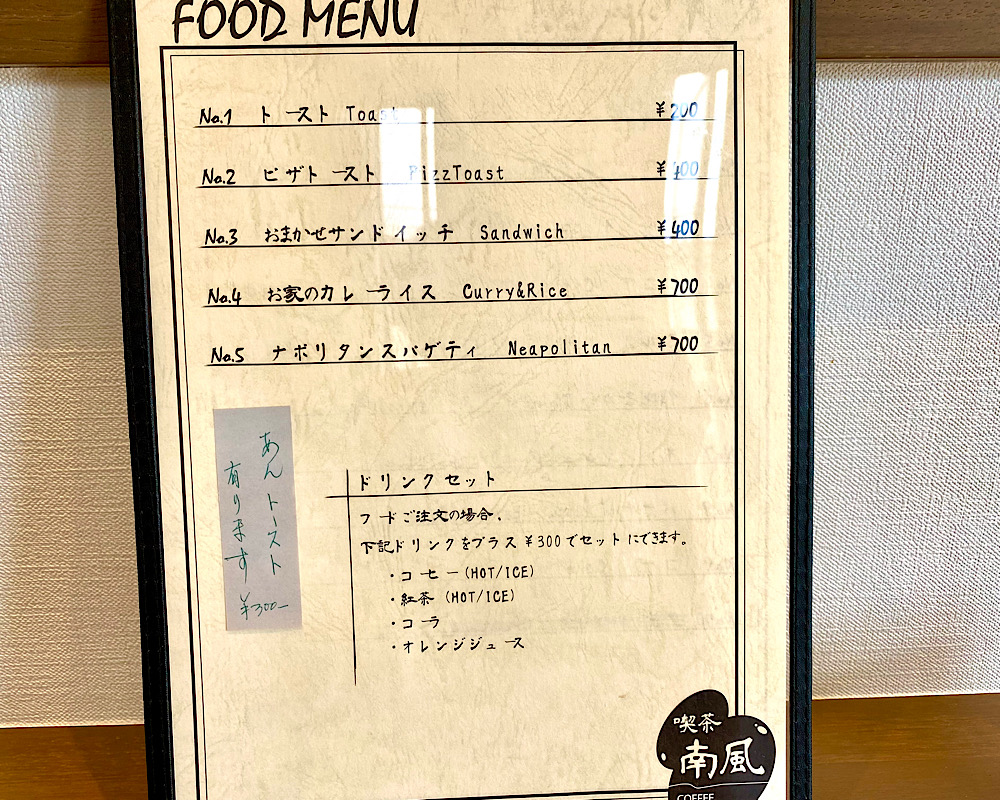 FOOD MENU
No.1 トースト Toast ¥200
No.2 ピザトースト PizzToast ¥400
No.3 おまかせサンドイッチ Sandwich ¥400
No.4 お家のカレーライス Curry&Rice ¥700
No.5 ナポリタンスパゲティ Neapolitan ¥700
あんトースト
有ります
¥300-
ドリンクセット
フードご注文の場合、
下記ドリンクをプラス¥300でセットにできます。
・コーヒー(HOT/ICE)
・紅茶(HOT/ICE)
・コーラ
・オレンジジュース
喫茶
南風
COFFEE